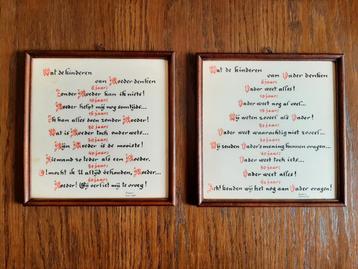 Wat de kinderen
van Moeder denken
6 jaar:
Zonder Moeder kan ik niets!
10 jaar:
Moeder helpt mij nog somtijds...
15 jaar:
Ik kan alles doen zonder Moeder!
20 jaar:
Wat is Moeder toch ouderwets...
30 jaar:
Mijn Moeder is de mooiste!
40 jaar:
Niemand zo teder als een Moeder,
50 jaar:
O! mocht ik U altijd behouden, Moeder...
60 jaar:
Moeder! Gij verliet mij te vroeg!
Wat de kinderen
van Vader denken
6 jaar:
Vader weet alles!
10 jaar:
Vader weet nog al veel...
15 jaar:
Wij weten zoveel als Vader!
20 jaar:
Vader weet waarachtig niet zoveel...
30 jaar:
Wij zouden Vader's mening kunnen vragen...
40 jaar:
Vader weet toch iets...
50 jaar:
Vader weet alles!
60 jaar:
Ach! konden wij het nog aan Vader vragen!